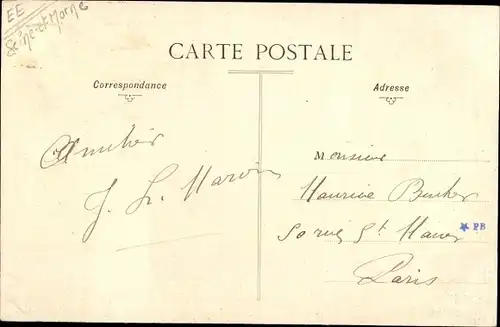 EE
Seine-et-Marne
CARTE POSTALE
Correspondance
Adresse
Amitiés
J. L. Marvin
Monsieur
Maurice
50 rue St
PB
Paris